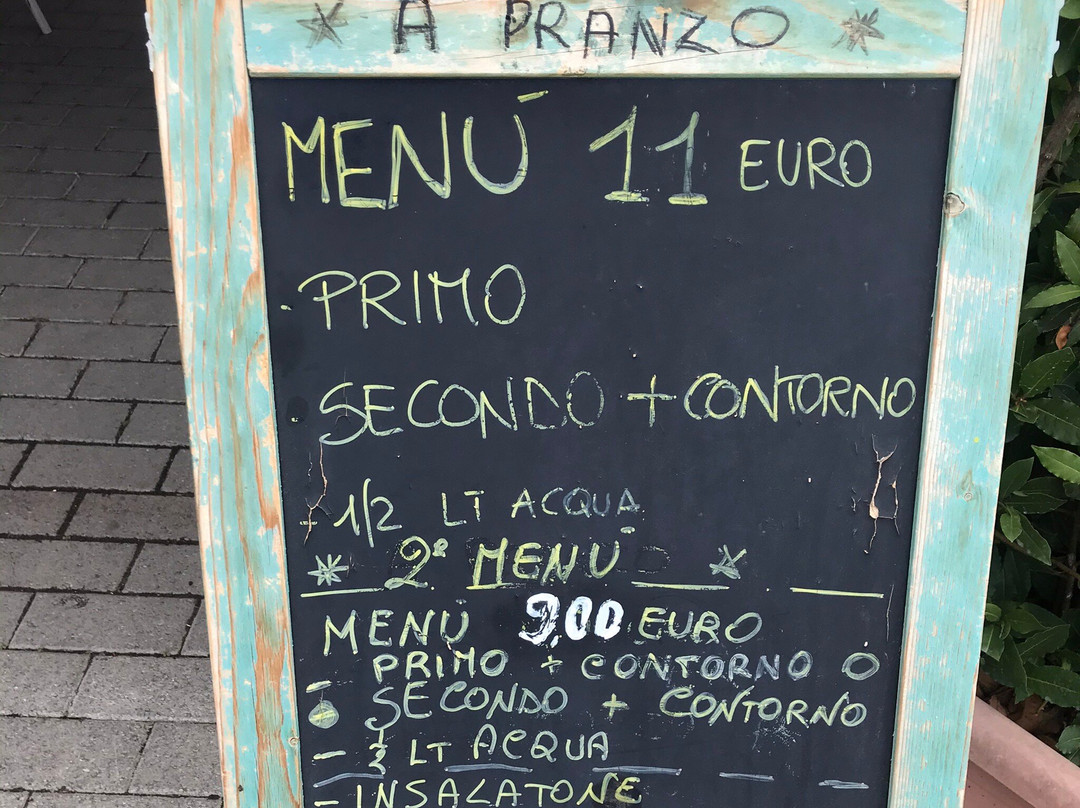 * A PRANZO *
MENÚ 11 EURO
- PRIMO
- SECONDO + CONTORNO
- 1/2 LT ACQUA
* 2° MENÚ *
MENÚ 9,00 EURO
PRIMO + CONTORNO Ó
- SECONDO + CONTORNO
- ½ LT ACQUA
- INSALATONE